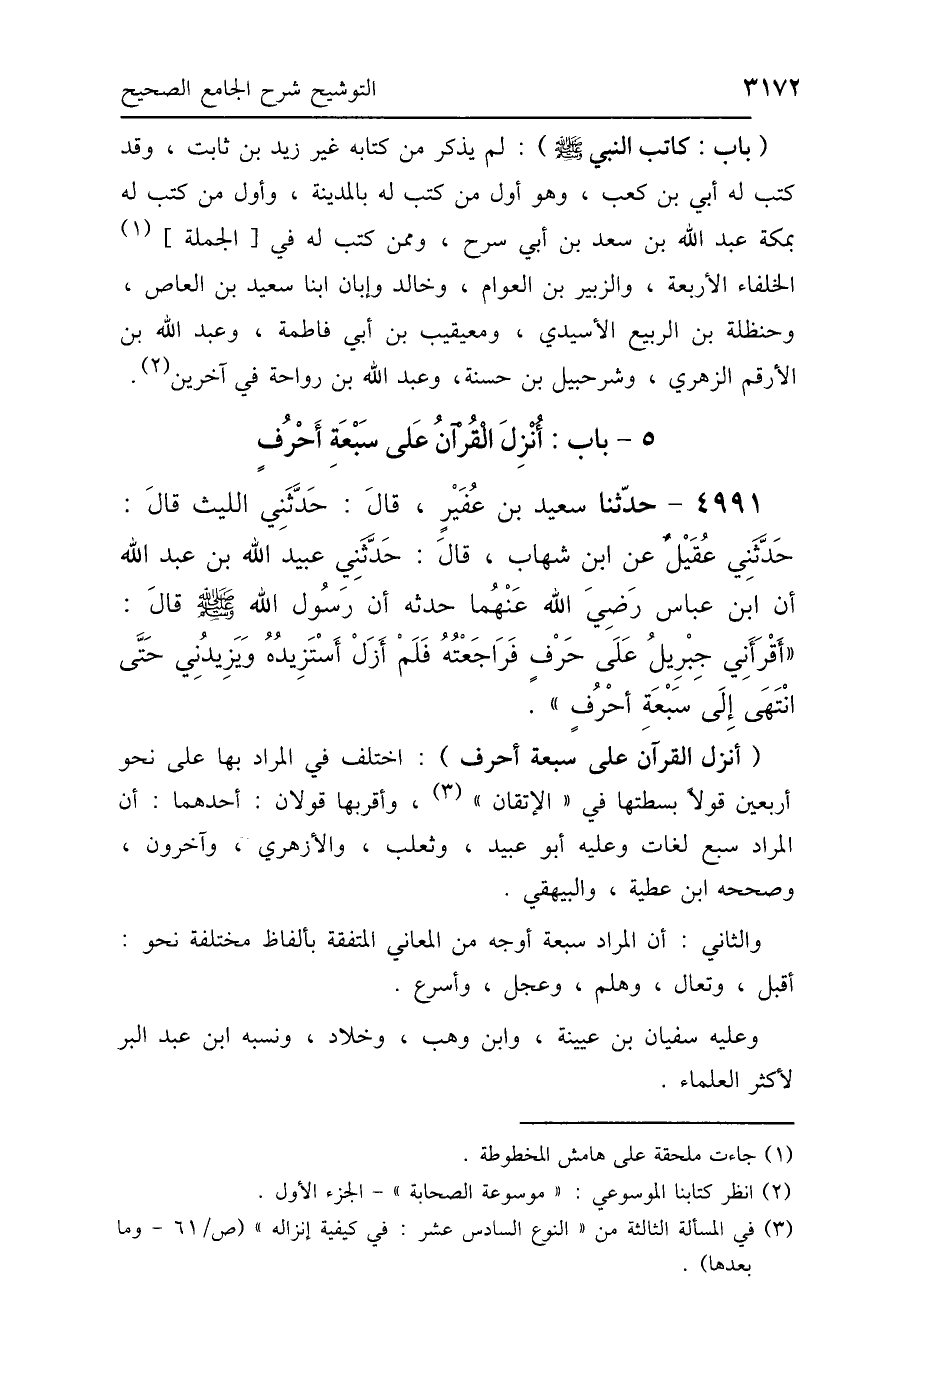 ٣١٧٢ التوشيح شرح الجامع الصحيح
( باب : كاتب النبي ﷺ ) : لم يذكر من كتابه غير زيد بن ثابت ، وقد
كتب له أبي بن كعب ، وهو أول من كتب له بالمدينة ، وأول من كتب له
بمكة عبد الله بن سعد بن أبي سرح ، وممن كتب له في [ الجملة ] (١)
الخلفاء الأربعة ، والزبير بن العوام ، وخالد وإبان ابنا سعيد بن العاص ،
وحنظلة بن الربيع الأسيدي ، ومعيقيب بن أبي فاطمة ، وعبد الله بن
الأرقم الزهري ، وشرحبيل بن حسنة، وعبد الله بن رواحة في آخرين(٢).
٥ - باب : أُنْزِلَ الْقُرْآنُ عَلى سَبْعَةِ أَحْرُفٍ
٤٩٩١ - حدّثنا سعيد بن عُفَيْرٍ ، قالَ : حَدَّثَنِي الليث قالَ :
حَدَّثَنِي عُقَيْلٌ عن ابن شهاب ، قالَ : حَدَّثَنِي عبيد الله بن عبد الله
أن ابن عباس رَضِيَ الله عَنْهُما حدثه أن رَسُول الله ﷺ قالَ :
«أَقْرَأَنِي جِبْرِيلُ عَلَى حَرْفٍ فَرَاجَعْتُهُ فَلَمْ أَزَلْ أَسْتَزِيدُهُ وَيَزِيدُنِي حَتَّى
انْتَهَى إِلَى سَبْعَةِ أحْرُفٍ » .
( أنزل القرآن على سبعة أحرف ) : اختلف في المراد بها على نحو
أربعين قولاً بسطتها في « الإتقان » (٣) ، وأقربها قولان : أحدهما : أن
المراد سبع لغات وعليه أبو عبيد ، وثعلب ، والأزهري ، وآخرون ،
وصححه ابن عطية ، والبيهقي .
والثاني : أن المراد سبعة أوجه من المعاني المتفقة بألفاظ مختلفة نحو :
أقبل ، وتعال ، وهلم ، وعجل ، وأسرع .
وعليه سفيان بن عيينة ، وابن وهب ، وخلاد ، ونسبه ابن عبد البر
لأكثر العلماء .
(١) جاءت ملحقة على هامش المخطوطة .
(٢) انظر كتابنا الموسوعي : « موسوعة الصحابة » - الجزء الأول .
(٣) في المسألة الثالثة من « النوع السادس عشر : في كيفية إنزاله » (ص/٦١ - وما
بعدها) .